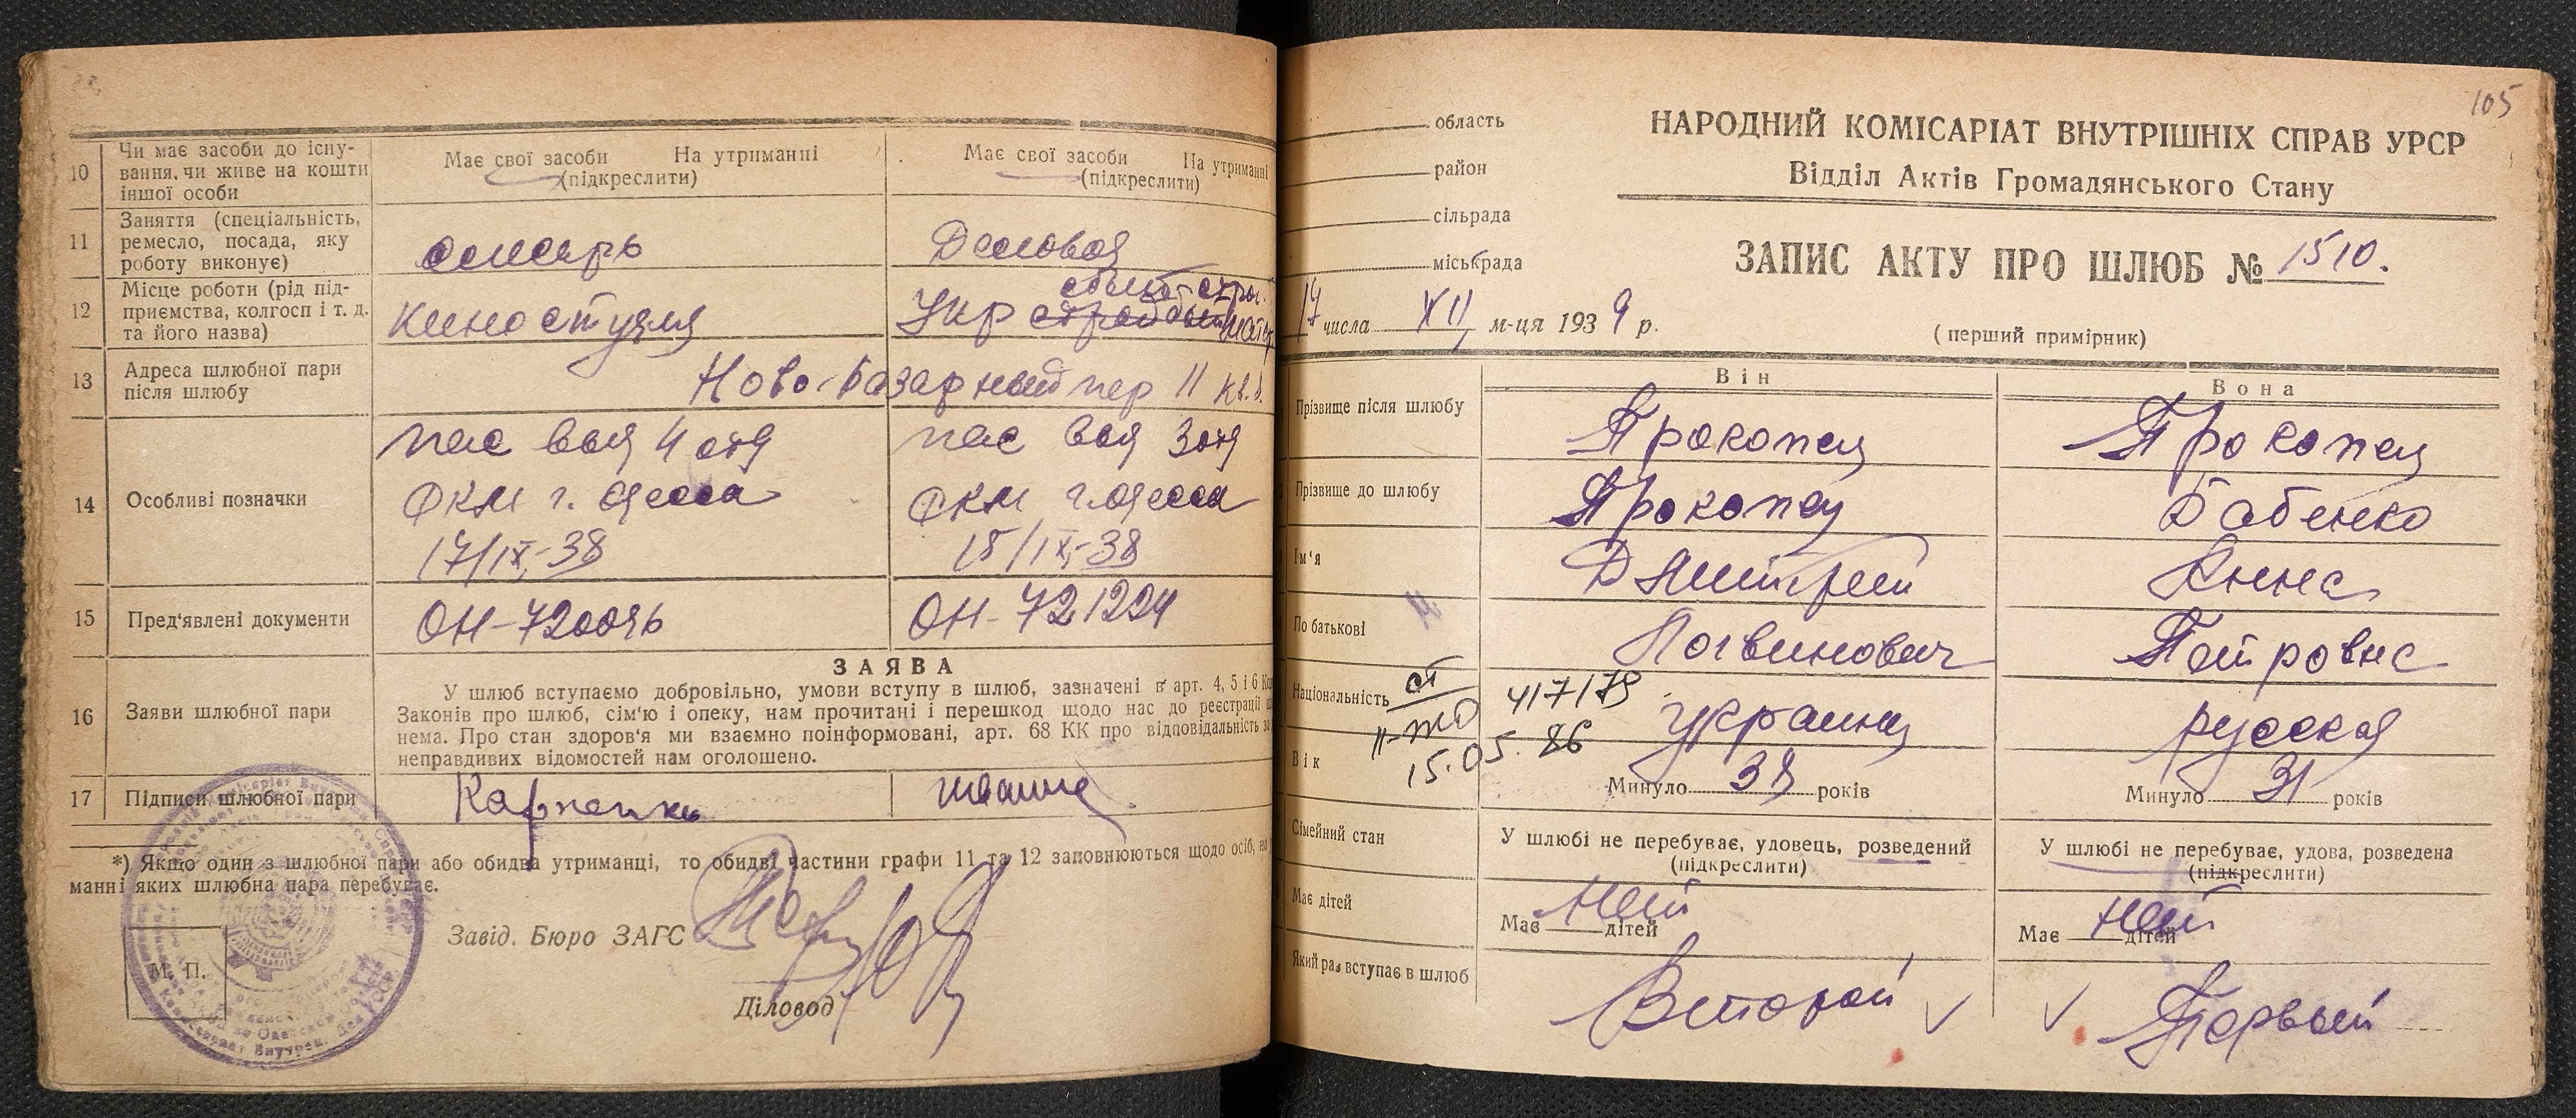 10 Чи має засоби до існу-
вання, чи живе на кошти
іншої особи
Має свої засоби На утриманні
(підкреслити)
Має свої засоби На утриманні
(підкреслити)
11 Заняття (спеціальність,
ремесло, посада, яку
роботу виконує)
слесарь
Деловод
12 Місце роботи (рід під-
приємства, колгосп і т. д.
та його назва)
киностудия
Укр
13 Адреса шлюбної пари
після шлюбу
Ново-Базарный пер 11 кв.
14 Особливі позначки
пас выд 4 отд
РКМ г. Одесса
17/IX-38
пас выд 3 отд
РКМ г. Одесса
15/IX-38
15 Пред'явлені документи
ОН-720096
ОН-721224
16 Заяви шлюбної пари
ЗАЯВА
У шлюб вступаємо добровільно, умови вступу в шлюб, зазначені в арт. 4, 5 і 6
Законів про шлюб, сім'ю і опеку, нам прочитані і перешкод щодо нас до реєстрації
нема. Про стан здоров'я ми взаємно поінформовані, арт. 68 КК про відповідальність за
неправдивих відомостей нам оголошено.
17 Підписи шлюбної пари
*) Якщо один з шлюбної пари або обидва утриманці, то обидві частини графи 11 та 12 заповнюються щодо осіб, на
манні яких шлюбна пара перебуває.
Завід. Бюро ЗАГС
М. П.
Діловод
105
область
район
сільрада
міськрада
НАРОДНИЙ КОМІСАРІАТ ВНУТРІШНІХ СПРАВ УРСР
Відділ Актів Громадянського Стану
ЗАПИС АКТУ ПРО ШЛЮБ № 1510.
17 числа XII м-ця 1939 р.
(перший примірник)
Він
Вона
Прізвище після шлюбу
Прокопец
Прокопец
Прізвище до шлюбу
Прокопец
Бабенко
Ім'я
Дмитрий
Анна
По батькові
Логвинович
Петровна
Національність
украинец
русская
ст
417179
15.05.86
Вік
Минуло 38 років
Минуло 31 років
Сімейний стан
У шлюбі не перебуває, удовець, розведений
(підкреслити)
У шлюбі не перебуває, удова, розведена
(підкреслити)
Має дітей
Має нет дітей
Має нет дітей
Який раз вступає в шлюб
Второй
Первый